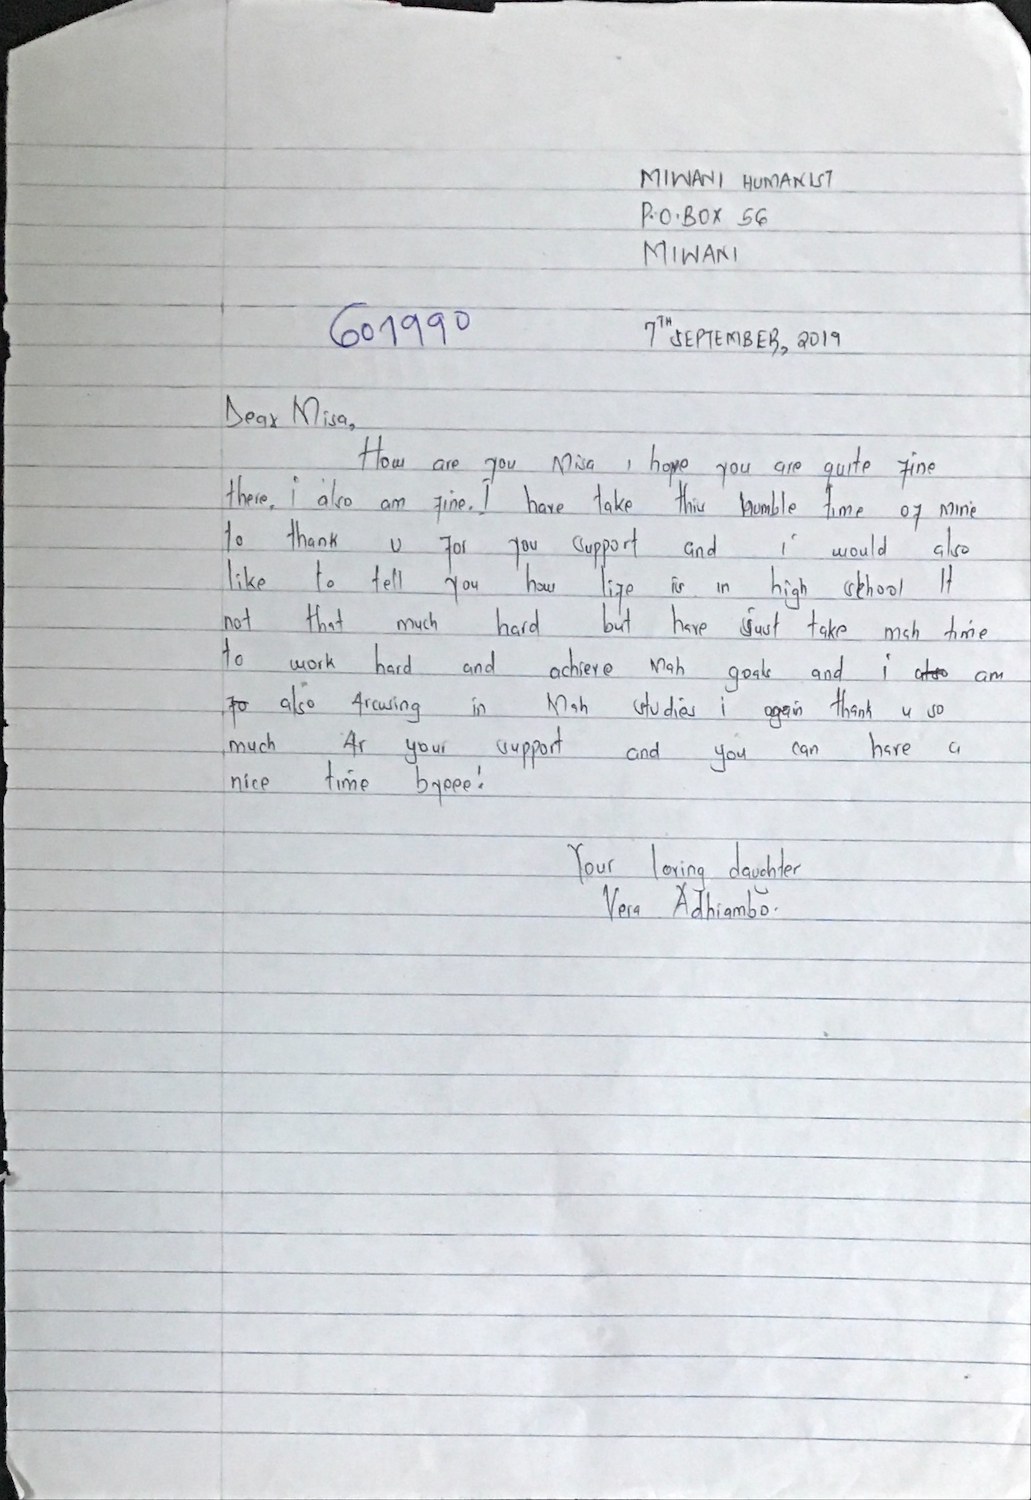 MIWANI HUMANIST
P.O.BOX 56
MIWANI
601990
7TH SEPTEMBER, 2019
Dear Misa,
How are you Misa, hope you are quite fine
there, i also am fine. I have take this humble time of mine
to thank u for you support and i would also
like to tell you how life is in high school It
not that much hard but have just take mah time
to work hard and achieve Mah goals and i also am
to also focusing in Mah studies i again thank u so
much for your support and you can have a
nice time byeee!
Your loving daughter
Vera Adhiambo.